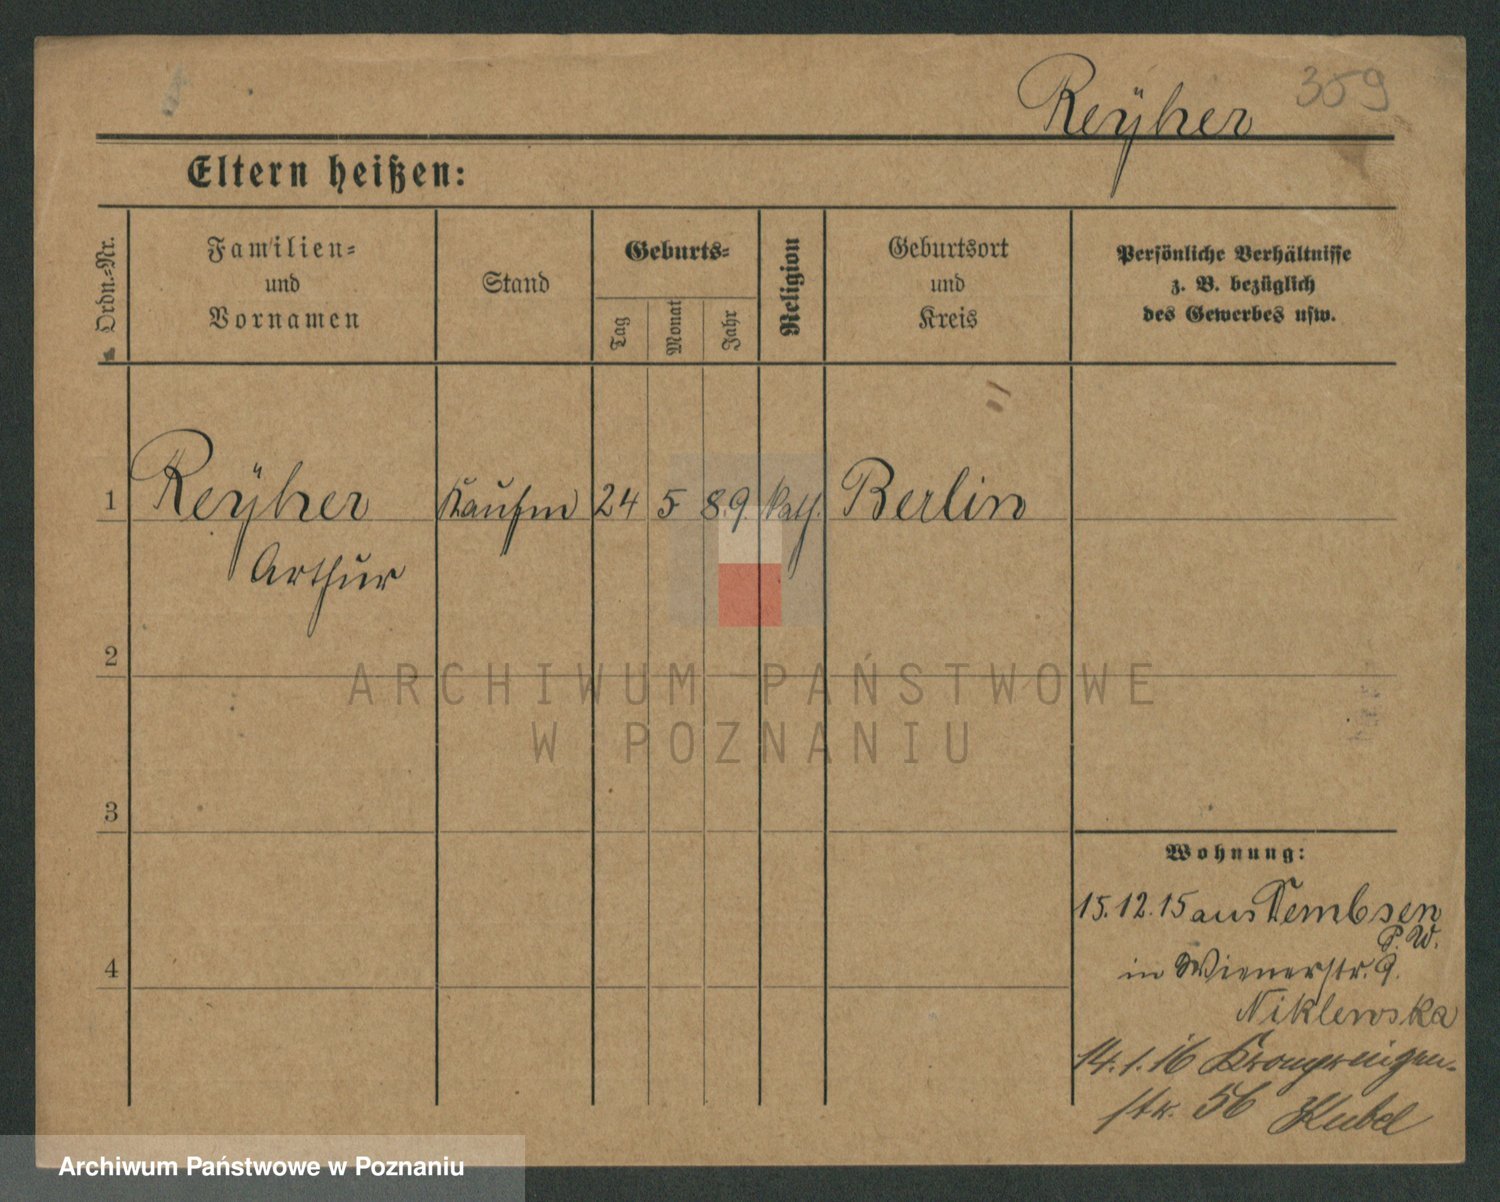 Reÿher 359
Eltern heißen:
Ordn.=Nr.
Familien=
und
Vornamen
Stand
Geburts=
Tag
Monat
Jahr
Religion
Geburtsort
und
Kreis
Persönliche Verhältnisse
z. B. bezüglich
des Gewerbes usw.
1 Reÿher Kaufm 24 5 89 kath. Berlin
Arthur
2
3
4
Wohnung:
15.12.15 aus Dembsen
P. W.
in Wienerstr. 9.
Niklewska
14.1.16 Kronprinzen-
str. 56 Kubel
ARCHIWUM PAŃSTWOWE
W POZNANIU
Archiwum Państwowe w Poznaniu